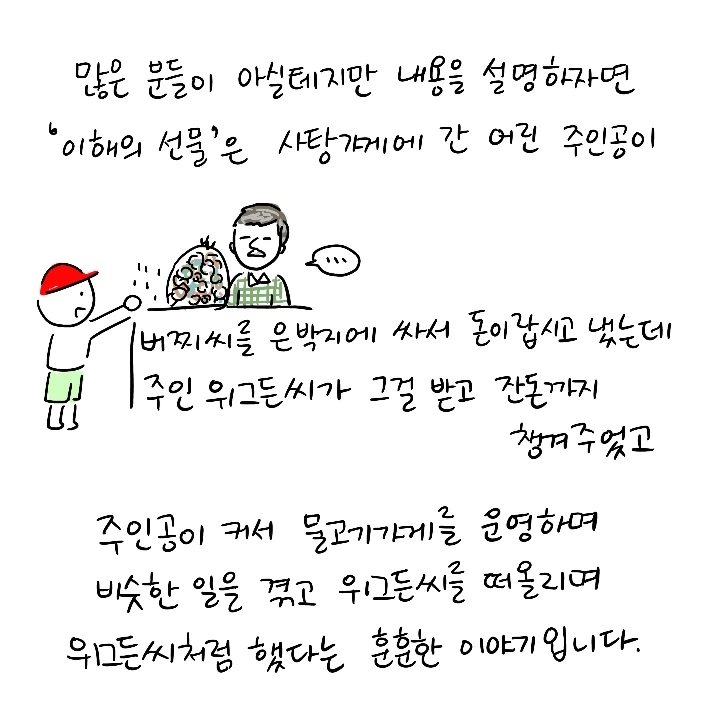 많은 분들이 아실테지만 내용을 설명하자면
'이해의 선물'은 사탕가게에 간 어린 주인공이
...
버찌씨를 은박지에 싸서 돈이랍시고 냈는데
주인 위그든씨가 그걸 받고 잔돈까지
챙겨주었고
주인공이 커서 물고기가게를 운영하며
비슷한 일을 겪고 위그든씨를 떠올리며
위그든씨처럼 했다는 훈훈한 이야기입니다.